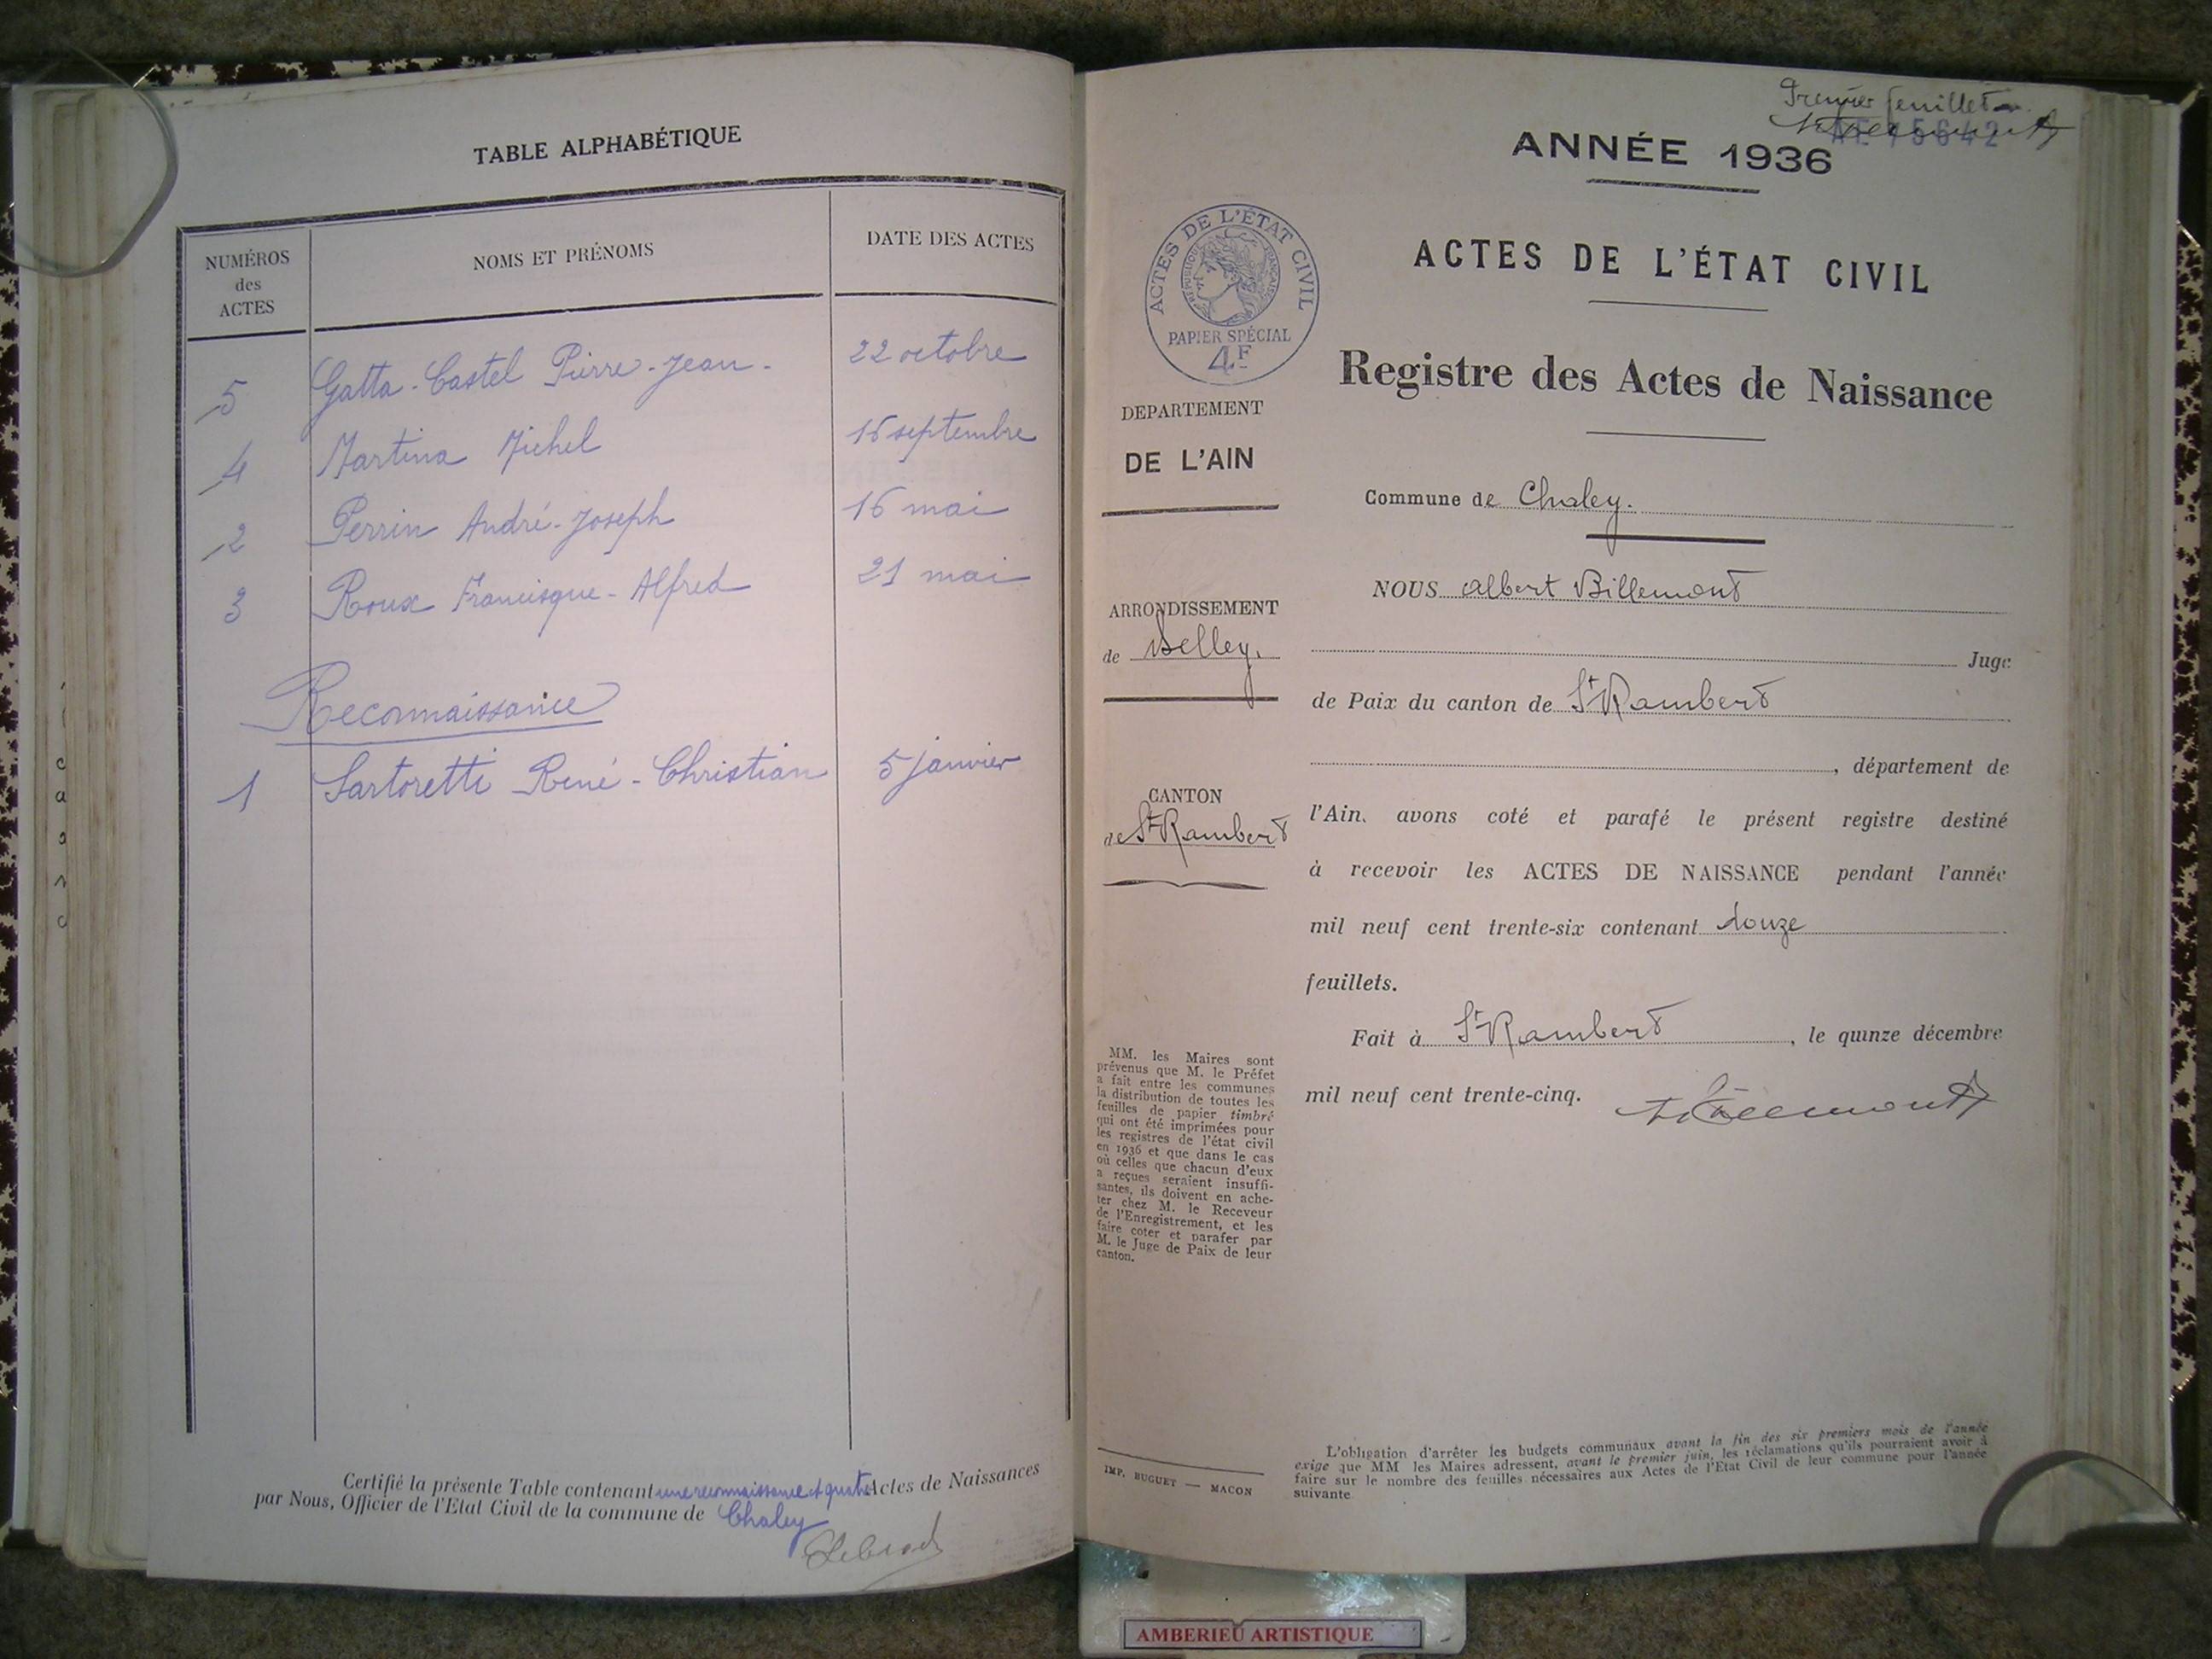 TABLE ALPHABÉTIQUE
NUMÉROS
des
ACTES
NOMS ET PRÉNOMS
DATE DES ACTES
5 Gatta-Castel Pierre-Jean- 22 octobre
4 Martina Michel 16 septembre
2 Perrin André-Joseph 16 mai
3 Roux Francisque-Alfred 21 mai
Reconnaissance
1 Sartoretti René-Christian 5 janvier
Certifié la présente Table contenant une reconnaissance et quatre Actes de Naissances
par Nous, Officier de l'Etat Civil de la commune de Chaley
Premier feuillet
ANNÉE 1936
ACTES DE L'ÉTAT CIVIL
RÉPUBLIQUE FRANÇAISE
PAPIER SPÉCIAL
4F
DEPARTEMENT
DE L'AIN
ARRONDISSEMENT
de Belley.
CANTON
de St Rambert
MM. les Maires sont
prévenus que M. le Préfet
a fait entre les communes
la distribution de toutes les
feuilles de papier timbré
qui ont été imprimées pour
les registres de l'état civil
en 1936 et que dans le cas
où celles que chacun d'eux
a reçues seraient insuffi-
santes, ils doivent en ache-
ter chez M. le Receveur
de l'Enregistrement, et les
faire coter et parafer par
M. le Juge de Paix de leur
canton.
IMP. BUGUET — MACON
ACTES DE L'ÉTAT CIVIL
Registre des Actes de Naissance
Commune de Chaley.
NOUS Albert Billemont
Juge
de Paix du canton de St Rambert
, département de
l'Ain, avons coté et parafé le présent registre destiné
à recevoir les ACTES DE NAISSANCE pendant l'année
mil neuf cent trente-six contenant douze
feuillets.
Fait à St Rambert, le quinze décembre
mil neuf cent trente-cinq.
L'obligation d'arrêter les budgets communaux avant la fin des six premiers mois de l'année
exige que MM les Maires adressent, avant le premier juin, les réclamations qu'ils pourraient avoir à
faire sur le nombre des feuilles nécessaires aux Actes de l'Etat Civil de leur commune pour l'année
suivante
AMBERIEU ARTISTIQUE